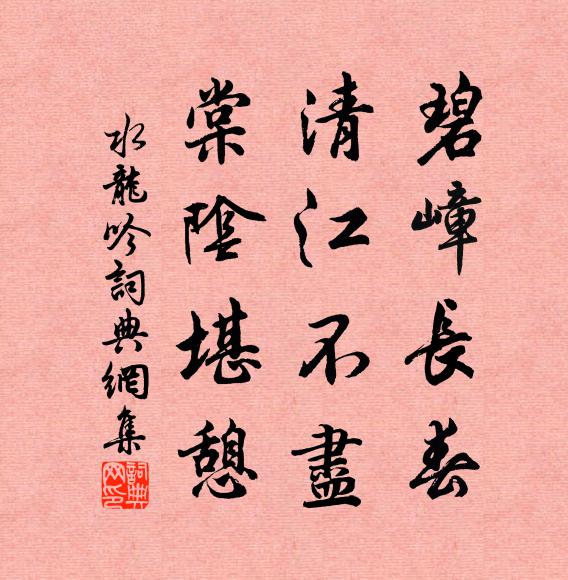 碧嶂長春
清江不盡
棠陰堪憩
水龍吟詞典網集
詞典网印